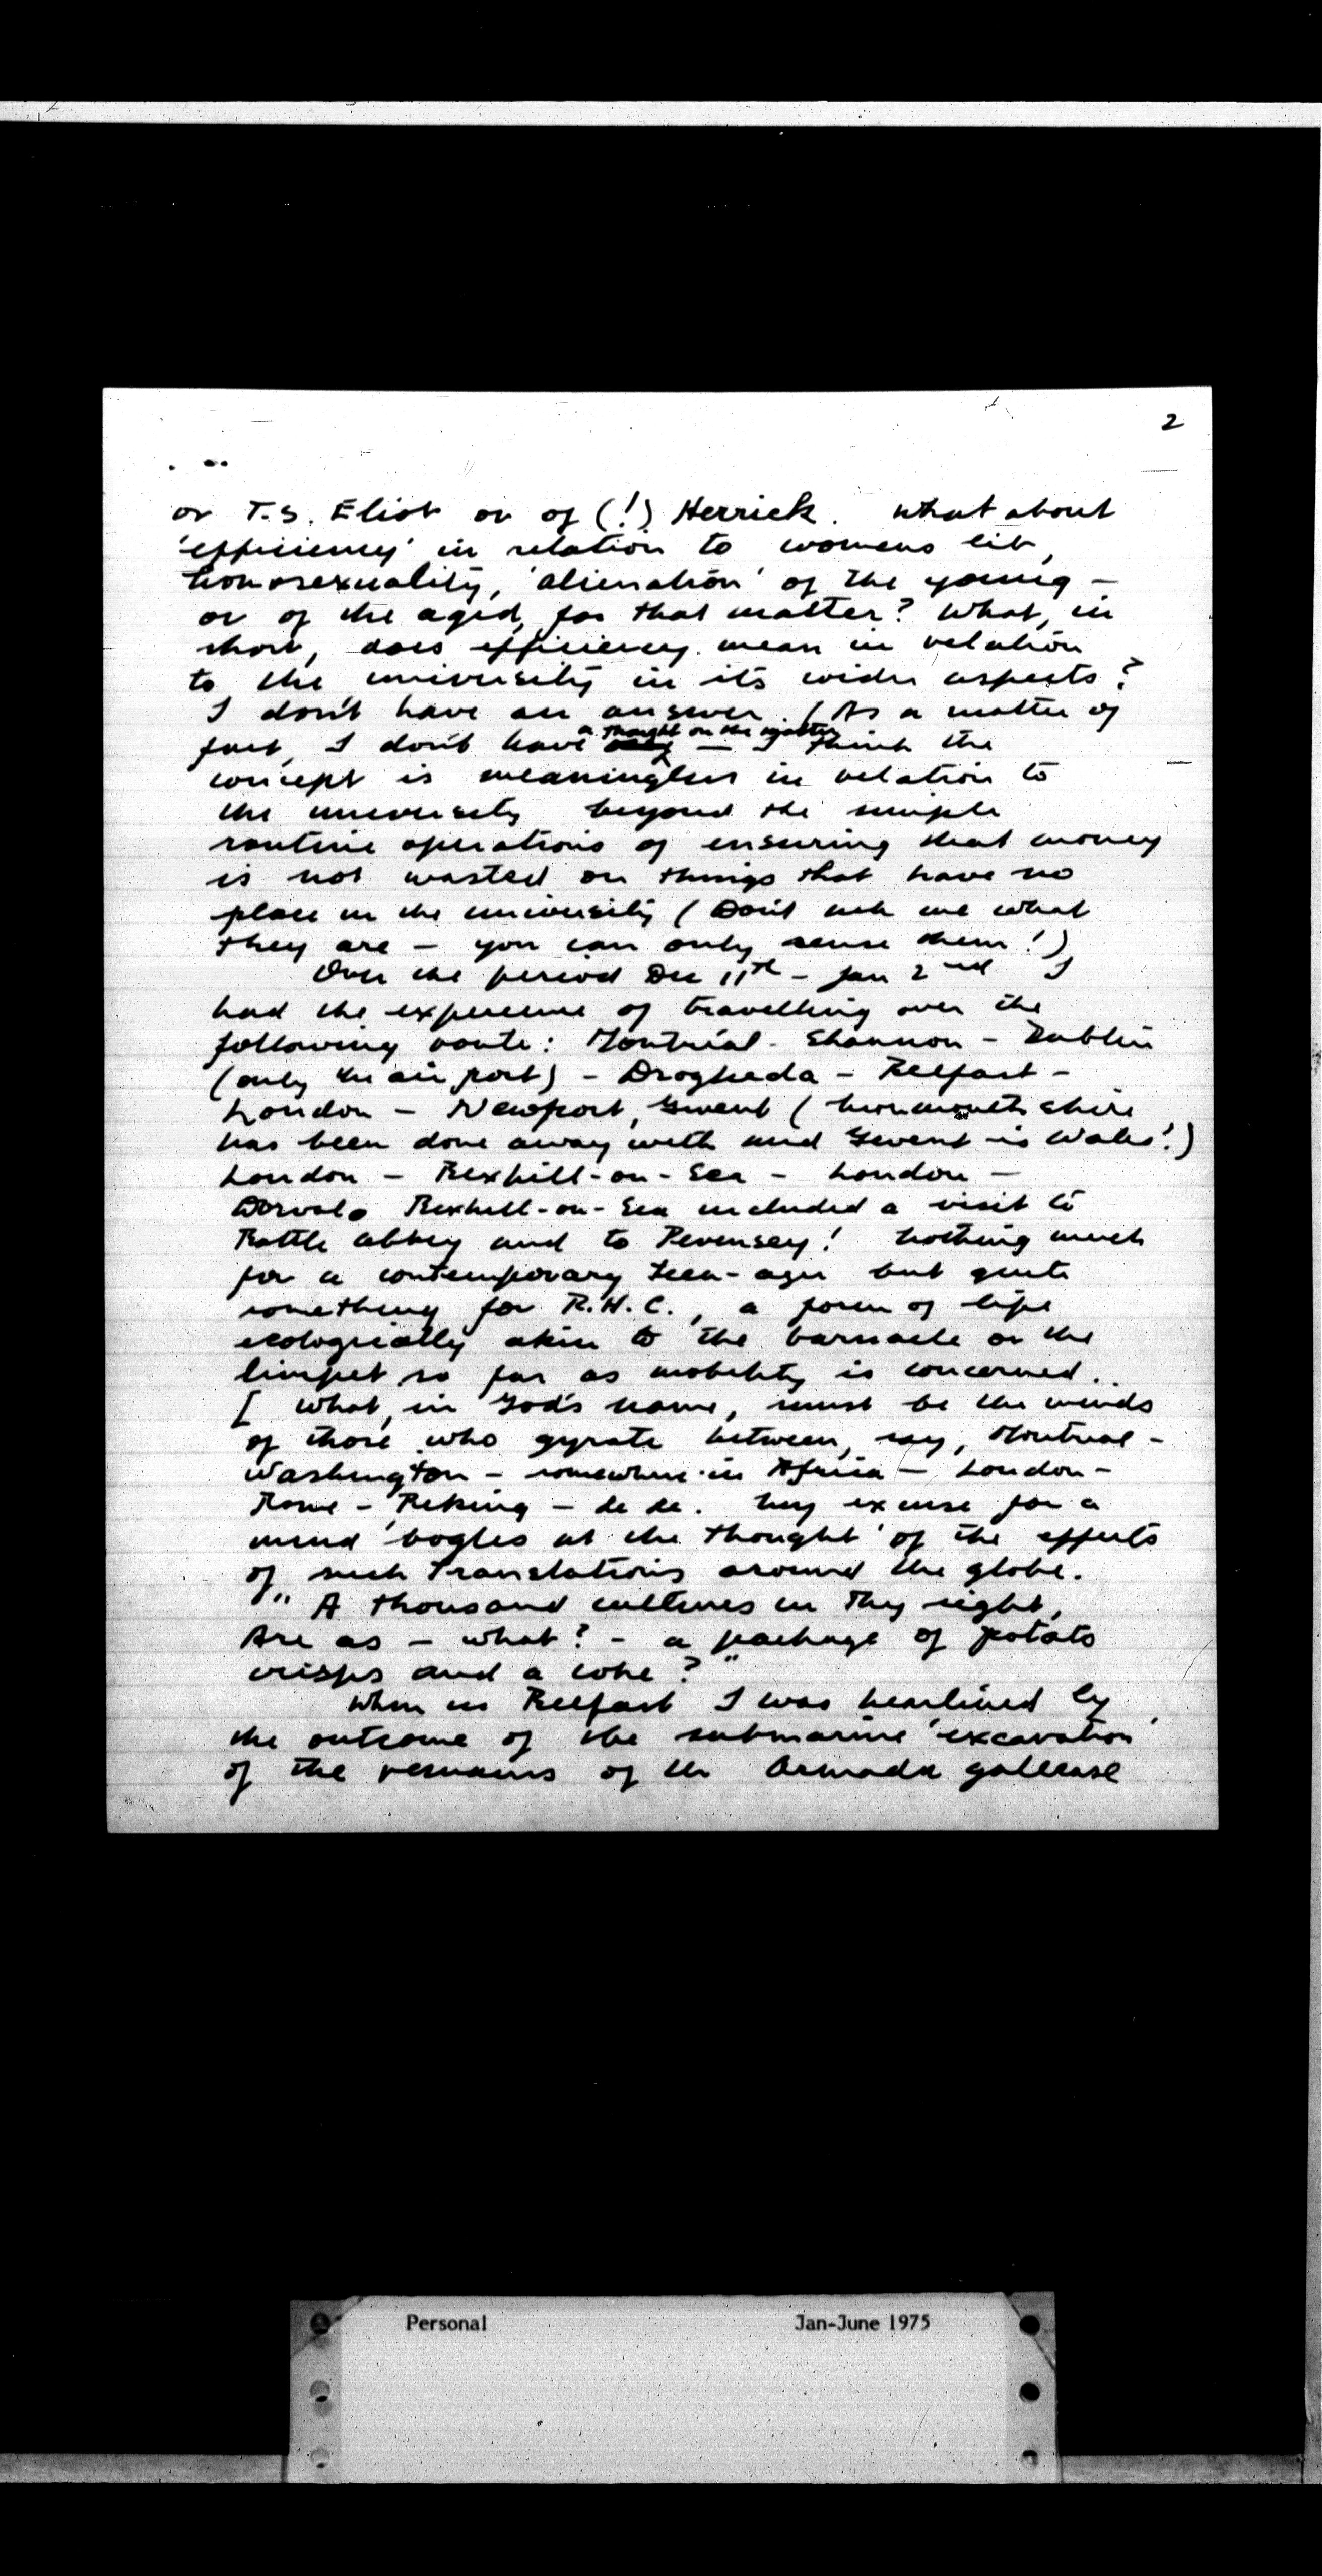 2
or T.S. Eliot or of (!) Herrick. What about
'efficiency' in relation to womens lib,
homosexuality, 'alienation' of the young -
or of the aged, for that matter? What, in
short, does efficiency mean in relation
to the university in its wider aspects?
I don't have an answer. (As a matter of
fact, I don't have a thought on the matter — I think the
concept is meaningless in relation to
the university beyond the simple
routine operations of ensuring that money
is not wasted on things that have no
place in the university (Don't ask me what
they are - you can only sense them!)
Over the period Dec 11th - Jan 2nd I
had the experience of travelling over the
following route: Montréal - Shannon - Dublin
(only the airport) - Drogheda - Belfast -
London - Newport, Gwent (Monmouthshire
has been done away with and Gwent is Wales!)
London - Bexhill-on-Sea - London -
Dorval. Bexhill-on-Sea included a visit to
Battle abbey and to Pevensey! Nothing much
for a contemporary teen-ager but quite
something for R.H.C., a form of life
ecologically akin to the barnacle or the
limpet so far as mobility is concerned..
[ What, in God's name, must be the minds
of those who gyrate between, say, Montreal -
Washington - somewhere in Africa - London -
Rome - Peking - de de. My excuse for a
mind 'bogles at the thought' of the effects
of such translations around the globe.
" A thousand cultures in Thy sight,
Are as - what? - a package of potato
crisps and a coke?"
When in Belfast I was heartened by
the outcome of the submarine 'excavation'
of the remains of the Armada galleass
Personal Jan-June 1975